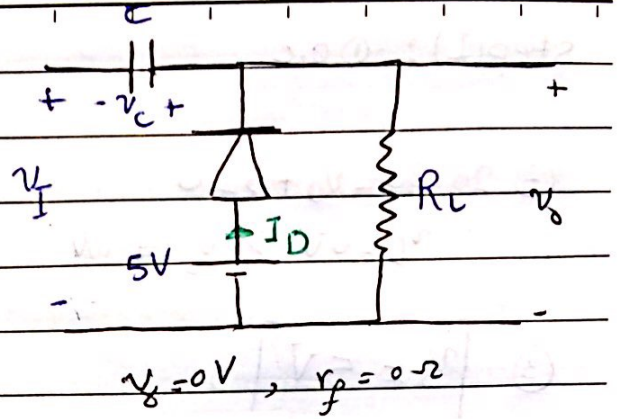 C
+ - v_C + +
v_I R_L v_o
I_D
5V
- -
v_γ = 0V , r_f = 0 Ω